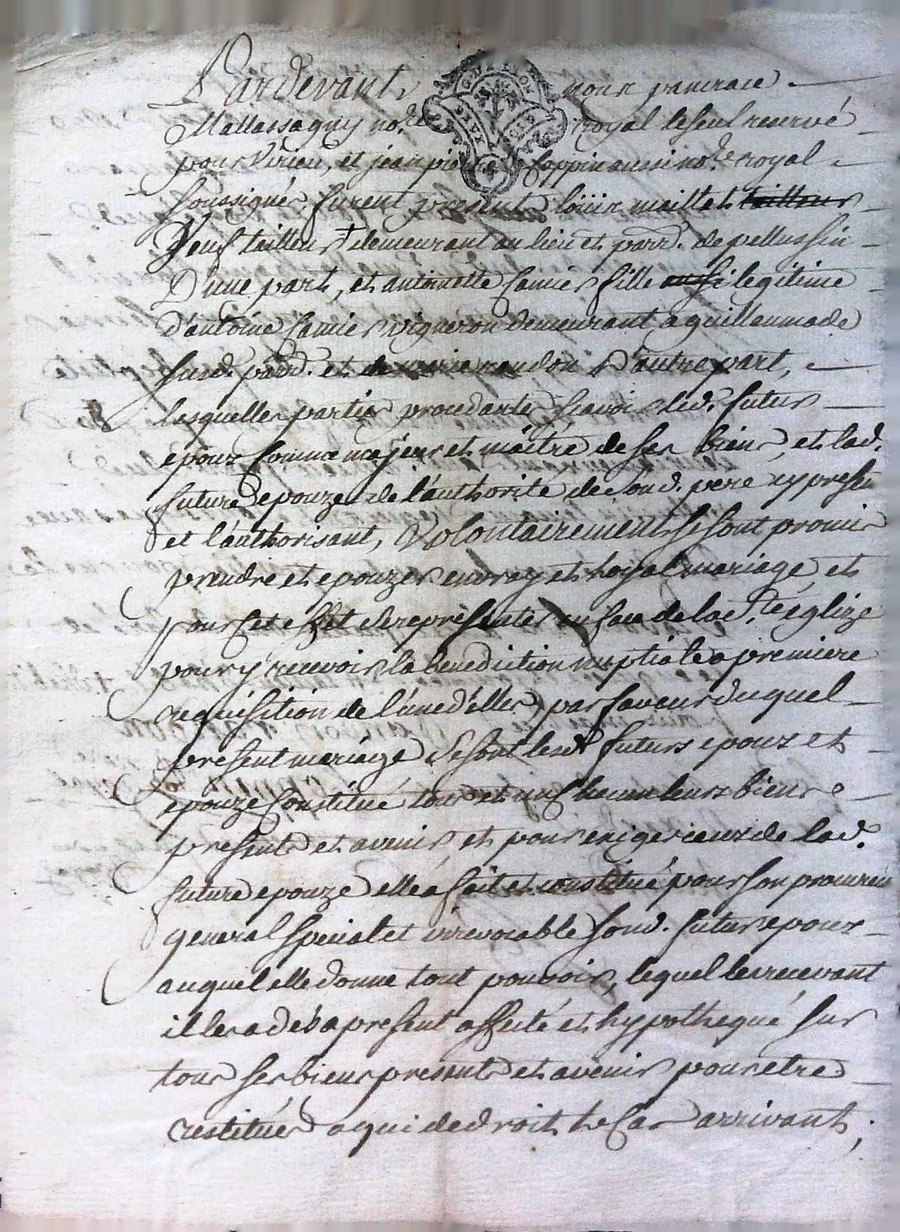 Pardevant, nous pancrace
Mallassagny no.re royal le seul reservé
pour Virieu, et jean Coppin aussi no.re royal
soussignés furent present louis maillet tailleur
Veuf tailleur demeurant au lieu et parr. de pellussin
D'une part, et antoinette Camier fille aussi legitime
d'antoine Camier vigneron demeurant a guillaumade
susd. parr. et de marie naudon d'autre part,
lesquelles parties procedante scavoir led. futur
epoux comme majeur et maitre de ses biens, et lad.
future epouze de l'authorité de sond. pere cy present
et l'authorisant, Volontairement se sont promis
prendre et epouzer en vray et loyal mariage, et
pour cet effet se representer en face de lad. s.te églize
pour y recevoir la benediction nuptiale a premiere
requisition de l'une d'elles, par faveur du quel
present mariage se sont lesd. futurs epoux et
epouze constitué tous et un chacun leurs biens
present et avenir et pour exiger ceux de lad.
future epouze elle a fait et constitué pour son procureur
general special et irrevocable sond. futur epoux
auquel elle donne tout pouvoir, lequel les recevant
il les a dès a present affecté et hypothequé sur
tous ses biens present et avenir pour etre
restitués a qui de droit le cas arrivant;